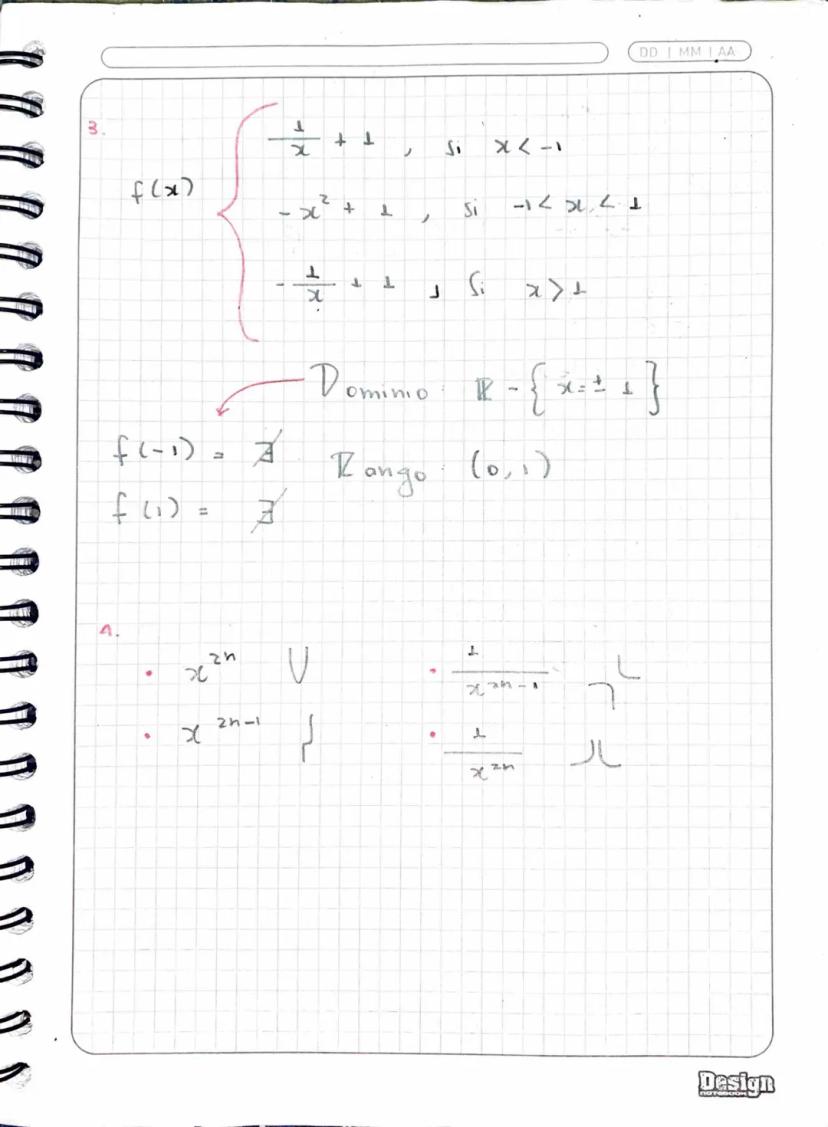 DD | MM | AA
3.
f(x) { 1/x + 1 , si x < -1
-x² + 1 , si -1 < x < 1
-1/x + 1 , Si x > 1
Dominio: ℝ - { x = ± 1 }
f(-1) = ∄ Rango: (0,1)
f(1) = ∄
4.
• x²ⁿ • 1/x²ⁿ⁻¹
• x²ⁿ⁻¹ • 1/x²ⁿ
Design
NOTEBOOK